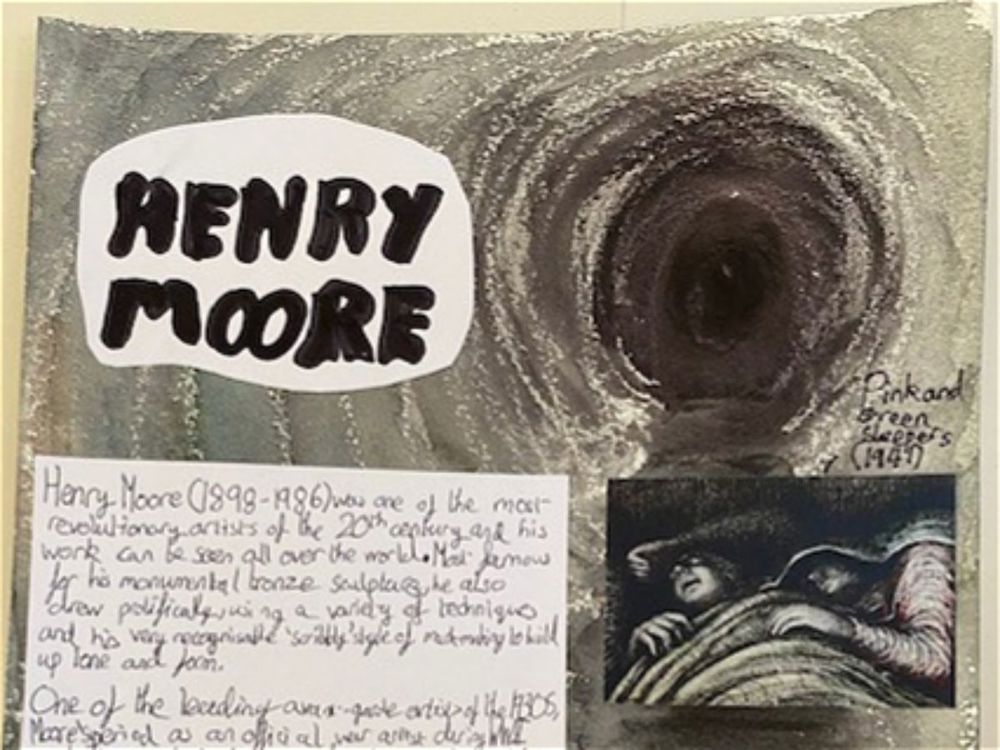 HENRY
MOORE
Pink and
Green
Sleepers
(1941)
Henry Moore (1898-1986) was one of the most
revolutionary artists of the 20th century and his
work can be seen all over the world. Most famous
for his monumental bronze sculptures, he also
drew prolifically, using a variety of techniques
and his very recognisable 'scribbly' style of mark-making to build
up tone and form.
One of the leading avant-garde artists of the 1930s,
Moore's period as an official war artist during